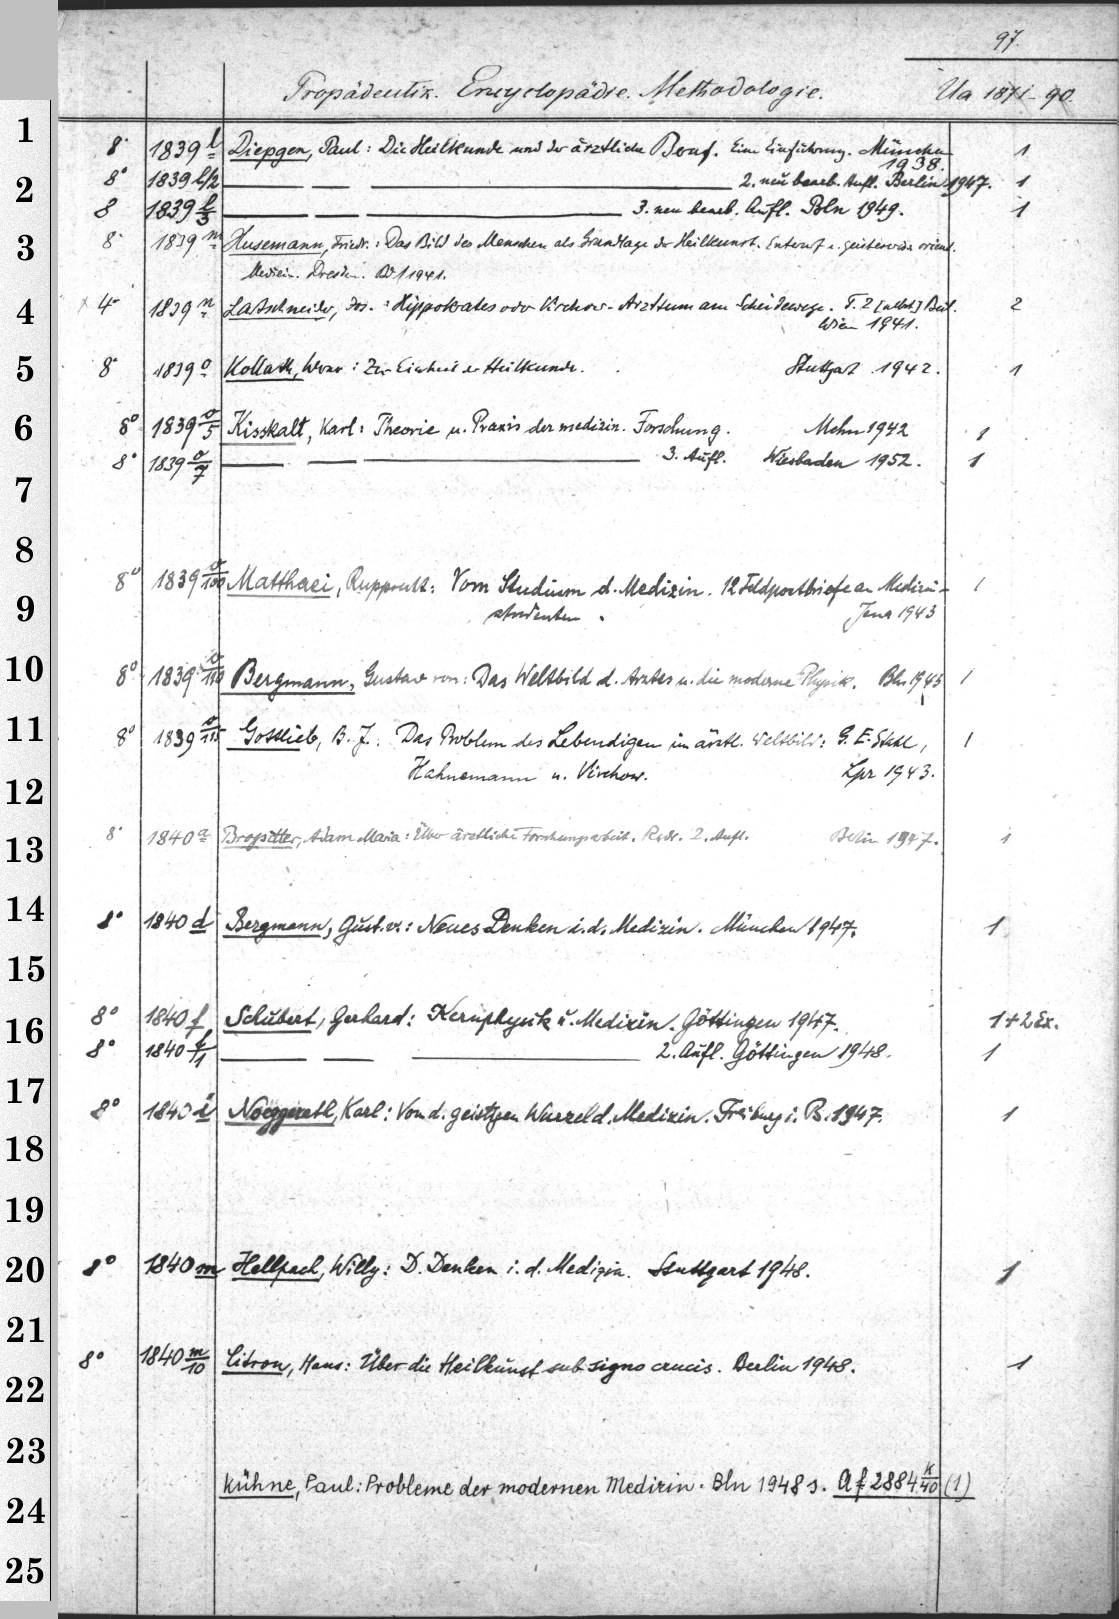 97.
Propädeutik. Encyclopädie. Methodologie. Ua 1871-90.
1
8° 1839 l Diepgen, Paul: Die Heilkunde und der ärztliche Beruf. Eine Einführung. München 1
1938.
2
8° 1839 l/2 — — — 2. neu bearb. Aufl. Berlin 1947. 1
8 1839 l/3 — — — 3. neu bearb. Aufl. Bln 1949. 1
3
8° 1839 m Husemann, Friedr.: Das Bild des Menschen als Grundlage der Heilkunst. Entwurf e. geisteswiss. orient.
Medizin. Dresden. Bd 1 1941.
4
x 4° 1839 n Latschneider, Jos.: Hippokrates oder Virchow. Arzttum am Scheidewege. T. 2 [nebst] Beil. 2
Wien 1941.
5
8° 1839 o Kollath, Werner: Zur Einheit der Heilkunde. Stuttgart 1942. 1
6
8° 1839 o/5 Kisskalt, Karl: Theorie u. Praxis der medizin. Forschung. Mchn 1942 1
8° 1839 o/7 — — — 3. Aufl. Wiesbaden 1952. 1
7
8
8° 1839 o/100 Matthaei, Rupprecht: Vom Studium d. Medizin. 12 Feldpostbriefe an Medizin- 1
9
studenten. Jena 1943
10
8° 1839 Bergmann, Gustav von: Das Weltbild d. Arztes u. die moderne Physik. Bln 1943 1
11
8° 1839 o/115 Gottlieb, B. J.: Das Problem des Lebendigen im ärztl. Weltbild: G. E. Stahl, 1
Hahnemann u. Virchow. Lpz 1943.
12
13
8° 1840 a Brogsitter, Adam Maria: Über ärztliche Forschungsarbeit. Rede. 2. Aufl. Berlin 1947. 1
14
8° 1840 d Bergmann, Gust. v.: Neues Denken i. d. Medizin. München 1947. 1
15
8° 1840 f Schubert, Gerhard: Kernphysik u. Medizin. Göttingen 1947. 1+2 Ex.
16
8° 1840 f/1 — — — 2. Aufl. Göttingen 1948. 1
17
8° 1840 i Noeggerath, Karl: Von d. geistigen Wurzel d. Medizin. Freiburg i. B. 1947. 1
18
19
20
8° 1840 m Hellpach, Willy: D. Denken i. d. Medizin. Stuttgart 1948. 1
21
8° 1840 m/10 Citron, Hans: Über die Heilkunst sub signo crucis. Berlin 1948. 1
22
23
Kühne, Paul: Probleme der modernen Medizin. Bln 1948 s. Af 2884 k/40 (1)
24
25